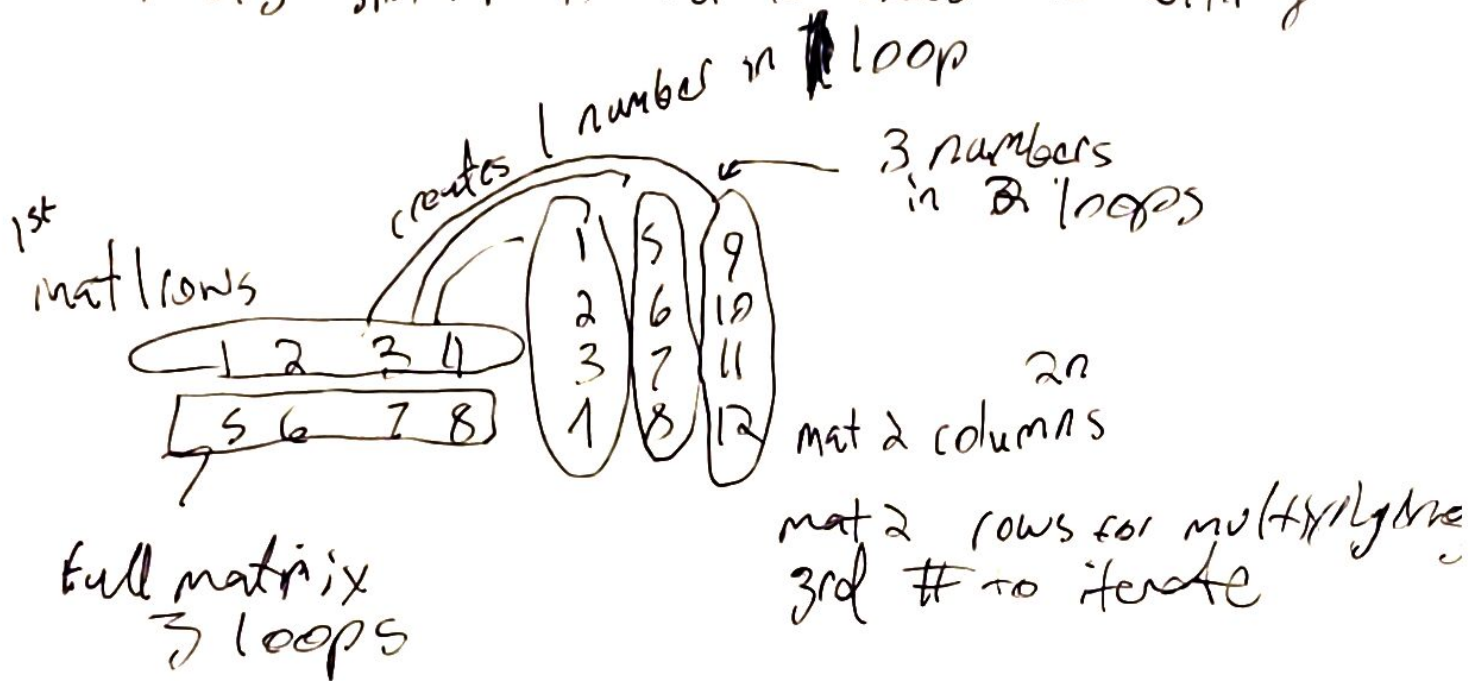 creates 1 number in 1 loop
3 numbers
in 2 loops
1st
mat 1 rows
1 5 9
2 6 10
3 7 11
1 2 3 4
5 6 7 8
8 12
2n
mat 2 columns
mat 2 rows for
3rd # to iterate
full matrix
3 loops